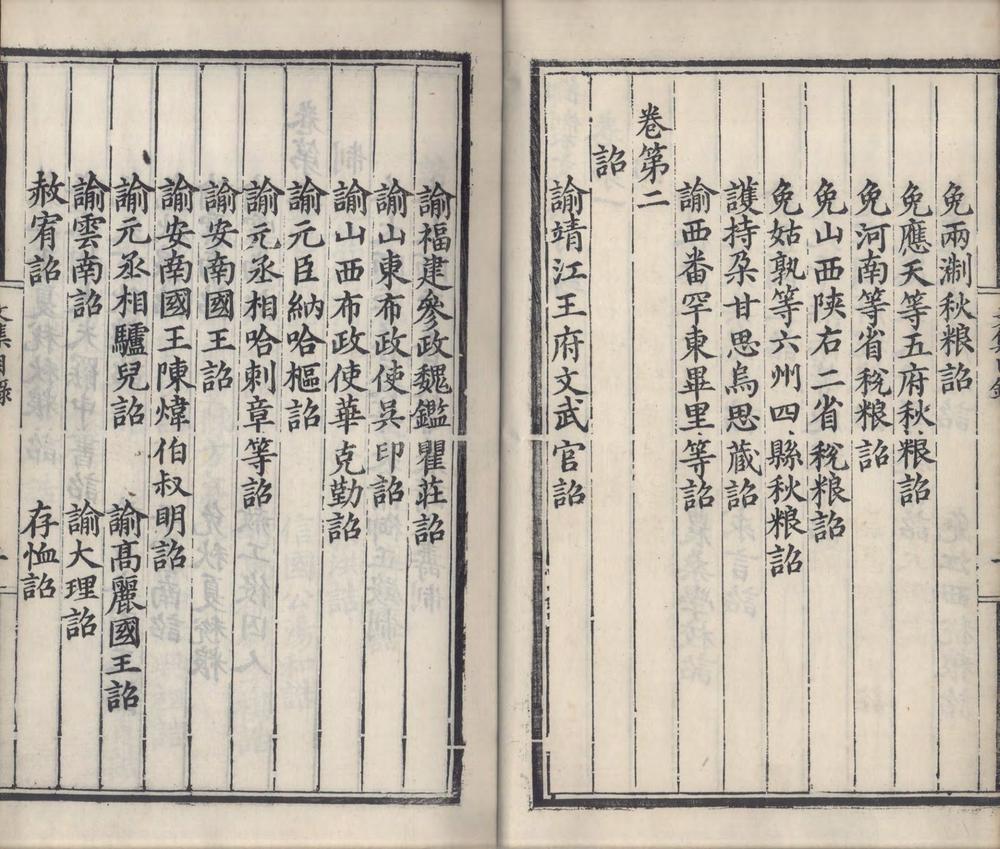 免兩淛秋粮詔
免應天等五府秋粮詔
免河南等省稅粮詔
免山西陝右二省稅粮詔
免姑孰等六州四縣秋粮詔
護持朶甘思烏思藏詔
諭西番罕東畢里等詔
卷第二
詔
諭靖江王府文武官詔
諭福建參政魏鑑瞿莊詔
諭山東布政使吳印詔
諭山西布政使華克勤詔
諭元臣納哈樞詔
諭元丞相哈剌章等詔
諭安南國王詔
諭安南國王陳煒伯叔明詔
諭元丞相驢兒詔 諭高麗國王詔
諭雲南詔 諭大理詔
赦宥詔 存恤詔
文集目錄